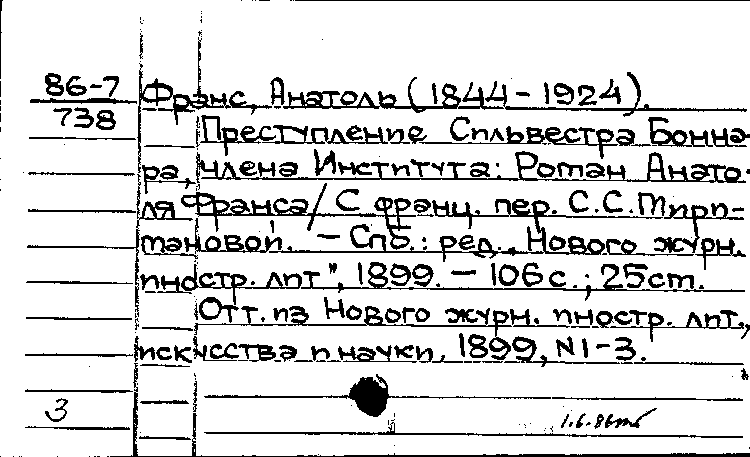 86-7
738
Франс, Анатоль (1844-1924).
Преступление Сильвестра Бонна-
ра, члена Института: Роман Анато-
ля Франса/ С франц. пер. С.С.Мири-
мановой. - Спб.: ред. „Нового журн.
иностр. лит", 1899. - 106с.; 25см.
Отт. из Нового журн. иностр. лит.,
искусства и науки, 1899, N1-3.
3
1.6.86